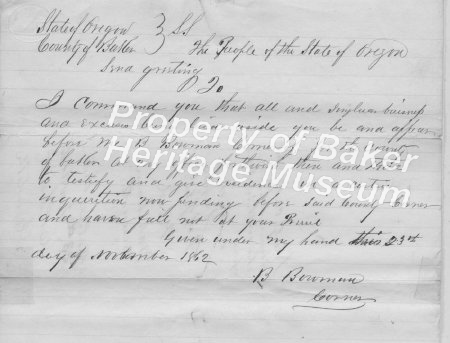 State of Oregon } SS
County of Baker } The People of the State of Oregon
Send greeting
To
I command you that all and singular buisness
and excuses being laid aside you be and appear
before me B Bowman Corner
of Baker then and there
to testify and give evidence in a certain
inquesition now pending before said County Corner
and hereof fail not at your Peril
Given under my hand this 23rd
day of November 1862
B Bowman
Corner
Property of Baker
Heritage Museum